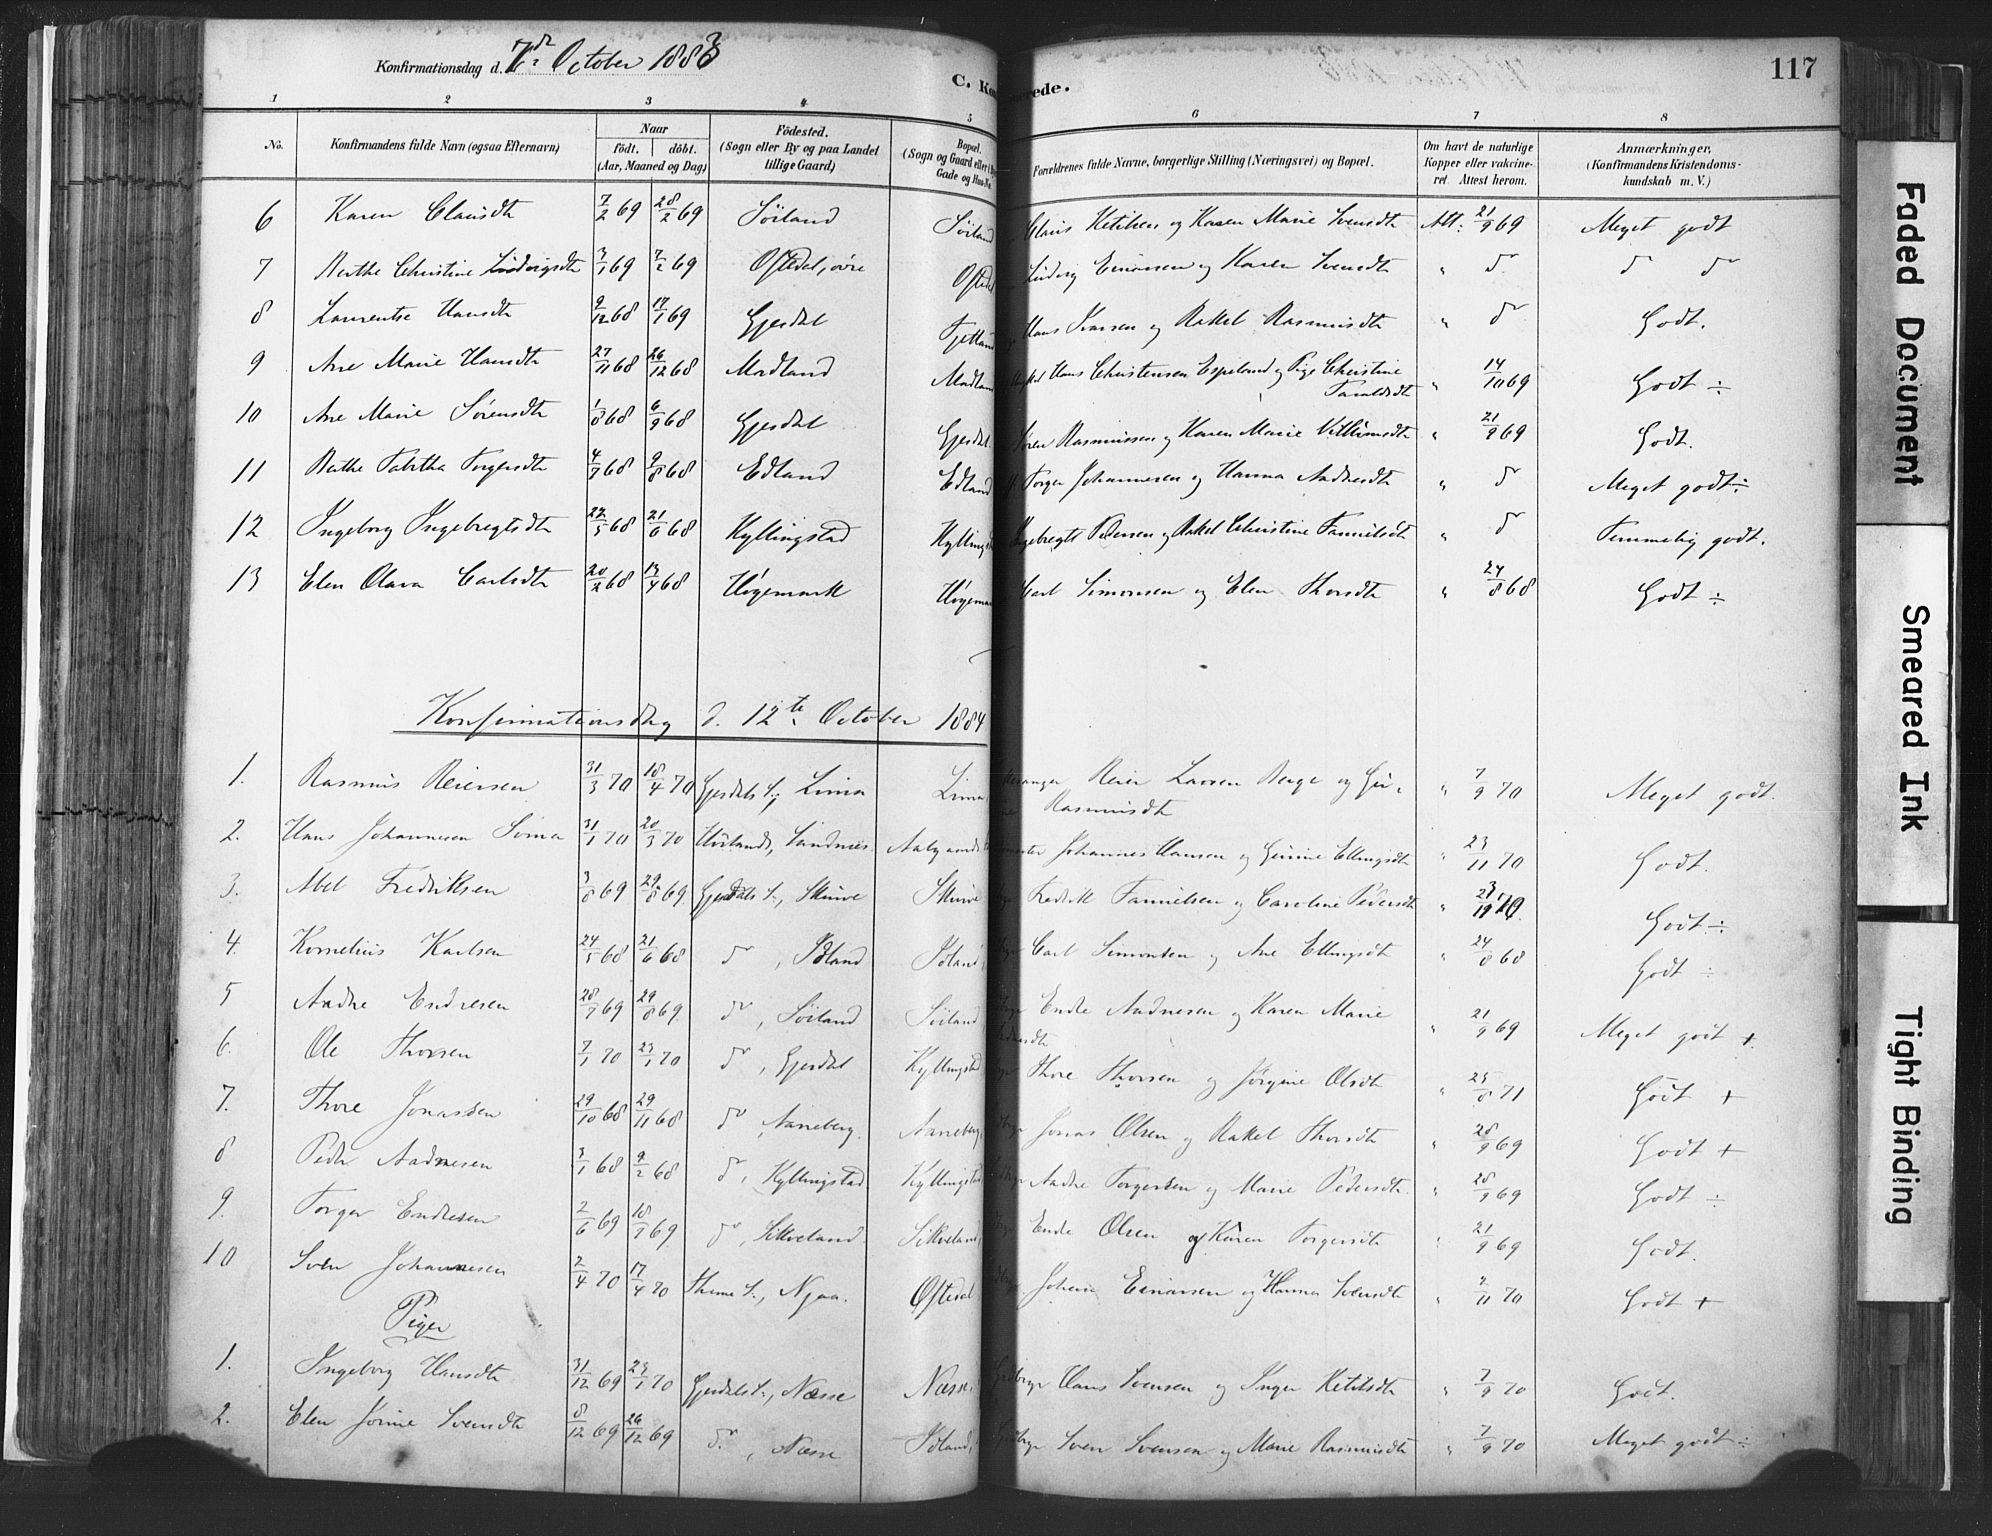 Konfirmationsdag d. 7de October 1883
C. Ko rede.
117
1 2 3 4 5 6 7 8
No. Konfirmandens fulde Navn (ogsaa Efternavn) Naar födt. döbt. (Aar, Maaned og Dag) Födested. (Sogn eller By og paa Landet tillige Gaard) Bopæl. (Sogn og Gaard eller Gade og Hus-No. Forældrenes fulde Navne, borgerlige Stilling (Næringsvei) og Bopæl. Om havt de naturlige Kopper eller vakcineret Attest herom. Anmærkninger. (Konfirmandens Kristendomskundskab m. V.)
6 Karen Clausdtr 7/2 69 28/2 69 Söiland Söiland Claus Ketilsen og Karen Marie Svensdtr Att: 21/9 69 Meget godt
7 Berthe Christine Ludvigsdtr 3/1 69 7/2 69 Oftedal, övre Ofted Ludvig Einarsen og Karen Svensdtr " do do do
8 Laurentse Hansdtr 9/12 68 17/1 69 Gjesdal Fjetland Hans Ivarsen og Rakel Rasmusdtr " do Godt.
9 Ane Marie Hansdtr 27/11 68 26/12 68 Madland Madlan Hans Christensen Espeland og Pige Christine Taraldsdtr " 14/10 69 Godt ÷
10 Ane Marie Sörensdtr 1/8 68 6/9 68 Gjesdal Gjesdal Sören Rasmussen og Karen Marie Villumsdtr " 21/9 69 Godt.
11 Berthe Tabitha Torgersdtr 4/7 68 9/8 68 Edland Edland Torger Johannesen og Hanna Andersdtr " do Meget godt ÷
12 Ingeborg Ingebregtsdtr 22/5 68 21/6 68 Kyllingstad Kyllingst Ingebregt Pedersen og Rakel Christine Tannilsdtr " do Temmelig godt.
13 Elen Olava Carlsdtr 20/2 68 13/4 68 Högemark Högema Carl Simonsen og Elen Thorsdtr " 24/8 68 Godt ÷
Konfirmationsdag d. 12te October 1884
1. Rasmus Reiersen 31/3 70 18/4 70 Gjesdals S., Lima Lima, Reier Larsen Berge og Gu- Rasmusdtr " 7/9 70 Meget godt.
2. Hans Johannesen Soma 31/1 70 20/3 70 Höilands, Sandnes. Johannes Hansen og Gurine Ellingsdtr " 23/11 70 Godt.
3. Abel Fredriksen 3/8 69 29/8 69 Gjesdals S., Skurve Skurve Fredrik Tannilsen og Caroline Pedersdtr " Godt ÷
4. Kornelius Karlsen 24/5 68 21/6 68 do, Idland Idland, Carl Simonsen og Ane Ellingsdtr " 24/8 68 Godt ÷
5 Andre Endresen 28/7 69 29/8 69 do, Söiland Söiland, Endre Andresen og Karen Marie " 21/9 69 Meget godt +
6. Ole Thorsen 7/1 70 23/1 70 do, Gjesdal Kyllingstad Thore Thorsen og Jörgine Olsdtr " 25/8 71 Godt +
7. Thore Jonassen 29/10 68 29/11 68 do, Aaneberg Aaneberg, Jonas Olsen og Rakel Thorsdtr " 28/9 69 Godt +
8 Peder Andresen 3/1 68 9/2 68 do, Kyllingstad Kyllingstad Andre Torgersen og Marie Pedersdtr. " 28/9 69 Godt ÷
9. Torger Endresen 2/6 69 18/7 69 do, Sikveland Sikveland, Endre Olsen og Karen Torgersdtr " 21/9 69 Godt.
10 Sven Johannesen 2/4 70 17/4 70 Thime S., Njaa. Oftedal Johan Einarsen og Hanna Svensdtr " 2/11 70 Godt +
Piger
1. Ingeborg Hansdtr 31/12 69 23/1 70 Gjesdals S., Næsse Næsse, Gdbrgr Hans Svensen og Inger Ketilsdtr " 7/9 70 Godt.
2. Elen Jörine Svensdtr 8/12 69 26/12 69 do, Næsse Idland, Sven Svensen og Marie Rasmusdtr " 7/9 70 Meget godt ÷
Faded Document
Smeared Ink
Tight Binding